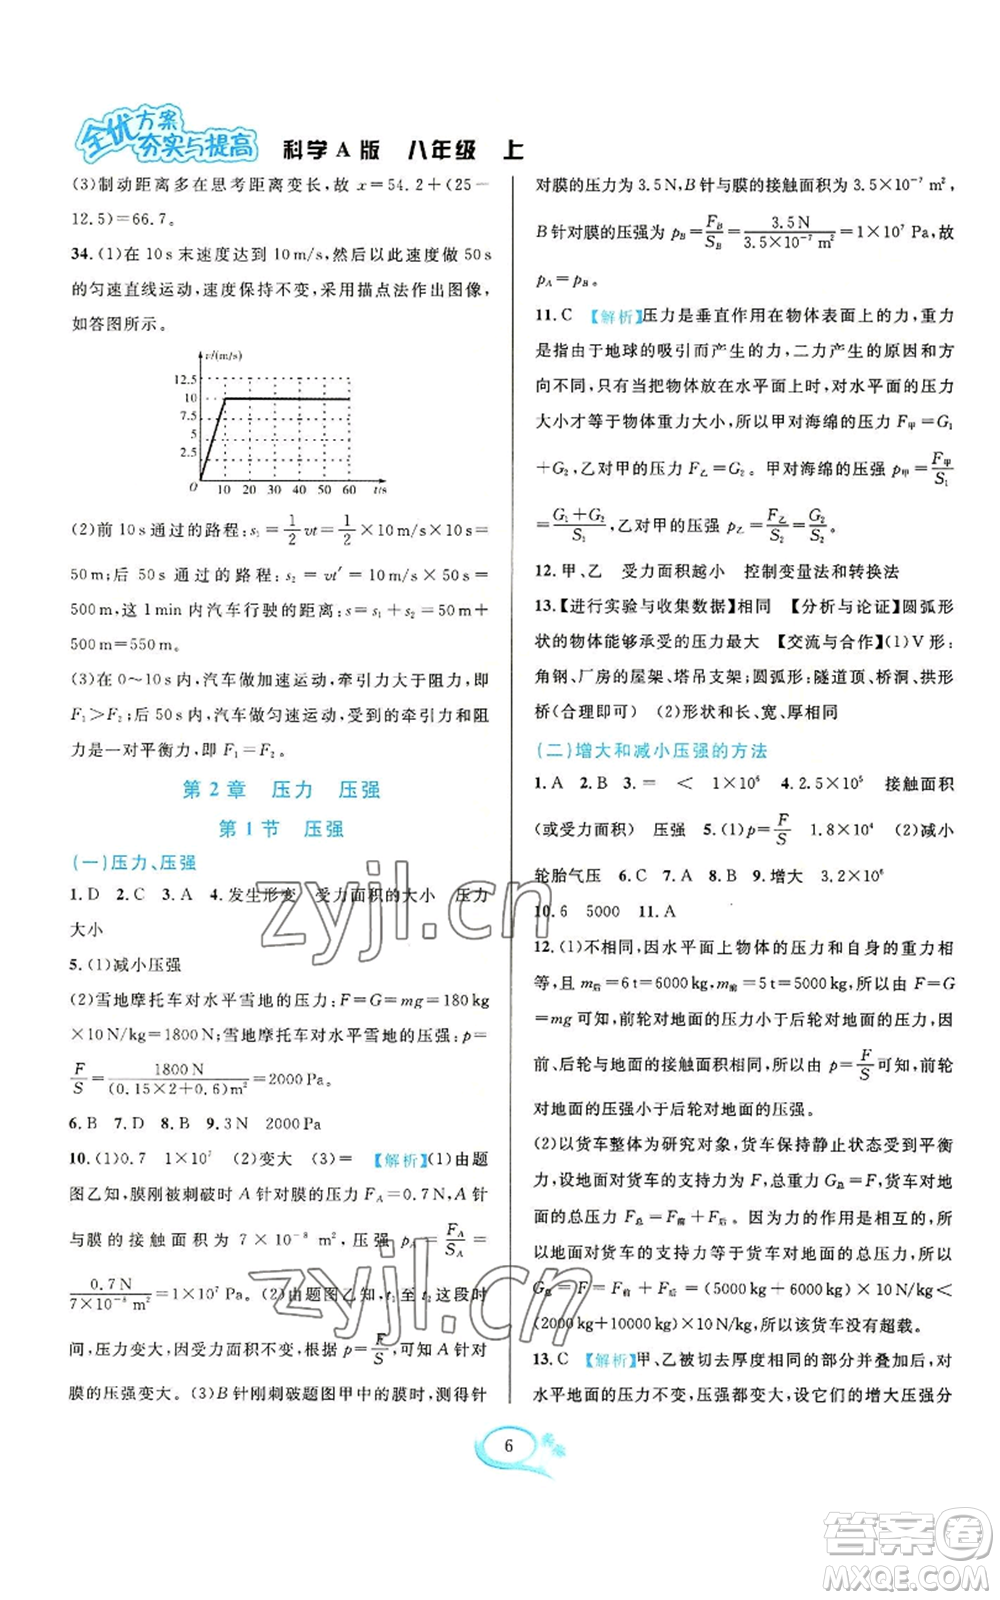 全优方案
夯实与提高
科学A版 八年级 上
(3)制动距离多在思考距离变长,故 x=54.2+(25-
12.5)=66.7。
34.(1)在10s末速度达到10m/s,然后以此速度做50s
的匀速直线运动,速度保持不变,采用描点法作出图像,
如答图所示。
v/(m/s)
12.5
10
7.5
5
2.5
O 10 20 30 40 50 60 t/s
(2)前10s通过的路程:s₁=1/2vt=1/2×10m/s×10s=
50m;后50s通过的路程:s₂=vt′=10m/s×50s=
500m,这1min内汽车行驶的距离:s=s₁+s₂=50m+
500m=550m。
(3)在0~10s内,汽车做加速运动,牵引力大于阻力,即
F₁>F₂;后50s内,汽车做匀速运动,受到的牵引力和阻
力是一对平衡力,即F₁=F₂。
第2章 压力 压强
第1节 压强
(一)压力、压强
1.D 2.C 3.A 4.发生形变 受力面积的大小 压力
大小
5.(1)减小压强
(2)雪地摩托车对水平雪地的压力:F=G=mg=180kg
×10N/kg=1800N;雪地摩托车对水平雪地的压强:p=
F/S=1800N/(0.15×2+0.6)m²=2000Pa。
6.B 7.D 8.D 9.3N 2000Pa
10.(1)0.7 1×10⁷ (2)变大 (3)= 【解析】(1)由题
图乙知,膜刚被刺破时A针对膜的压力F_A=0.7N,A针
与膜的接触面积为7×10⁻⁸ m²,压强 p_A=F_A/S_A=
0.7N/7×10⁻⁸ m²=1×10⁷Pa。(2)由题图乙知,t₁至t₂这段时
间,压力变大,因受力面积不变,根据p=F/S可知,A针对
膜的压强变大。(3)B针刚刺破题图甲中的膜时,测得针
对膜的压力为3.5N,B针与膜的接触面积为3.5×10⁻⁷ m²,
B针对膜的压强为p_B=F_B/S_B=3.5N/3.5×10⁻⁷ m²=1×10⁷Pa,故
p_A=p_B。
11.C 【解析】压力是垂直作用在物体表面上的力,重力
是指由于地球的吸引而产生的力,二力产生的原因和方
向不同,只有当把物体放在水平面上时,对水平面的压力
大小才等于物体重力大小,所以甲对海绵的压力F甲=G₁
+G₂,乙对甲的压力F乙=G₂。甲对海绵的压强p甲=F甲/S₁
=G₁+G₂/S₁,乙对甲的压强p乙=F乙/S₂=G₂/S₂。
12.甲、乙 受力面积越小 控制变量法和转换法
13.【进行实验与收集数据】相同 【分析与论证】圆弧形
状的物体能够承受的压力最大 【交流与合作】(1)V形:
角钢、厂房的屋架、塔吊支架;圆弧形:隧道顶、桥洞、拱形
桥(合理即可) (2)形状和长、宽、厚相同
(二)增大和减小压强的方法
1.A 2.B 3.= < 1×10⁵ 4.2.5×10⁵ 接触面积
(或受力面积) 压强 5.(1)p=F/S 1.8×10⁴ (2)减小
轮胎气压 6.C 7.A 8.B 9.增大 3.2×10⁶
10.6 5000 11.A
12.(1)不相同,因水平面上物体的压力和自身的重力相
等,且m后=6t=6000kg,m前=5t=5000kg,所以由F=G
=mg可知,前轮对地面的压力小于后轮对地面的压力,因
前、后轮与地面的接触面积相同,所以由p=F/S可知,前轮
对地面的压强小于后轮对地面的压强。
(2)以货车整体为研究对象,货车保持静止状态受到平衡
力,所以地面对货车的支持力为G总=F,货车对地
面的总压力F总=F前+F后。因为力的作用是相互的,
所以地面对货车的支持力等于货车对地面的总压力,所以
G总=F=F前+F后=(5000kg+6000kg)×10N/kg<
(2000kg+10000kg)×10N/kg,所以该货车没有超载。
13.C 【解析】甲、乙被切去厚度相同的部分并叠加后,对
水平地面的压力不变,压强都变大,设它们的增大压强分
6
zyjl.cn
zyjl.cn
答案卷
MXQE.COM